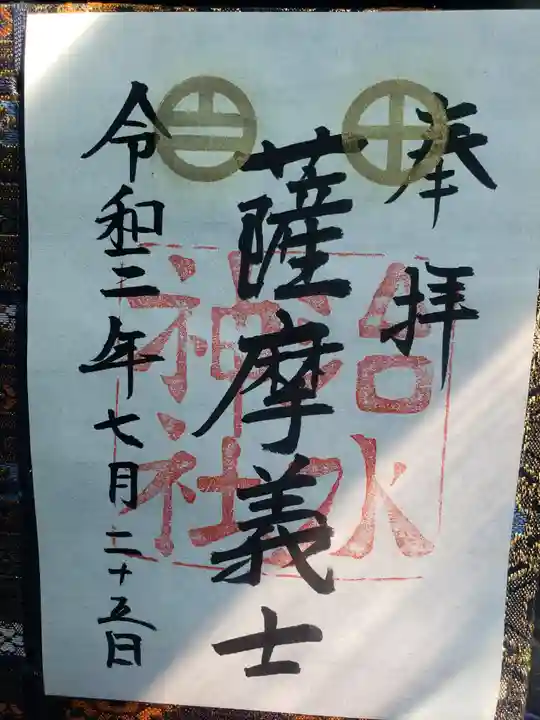 奉拝
薩摩義士
令和二年七月二十五日
治水
神社